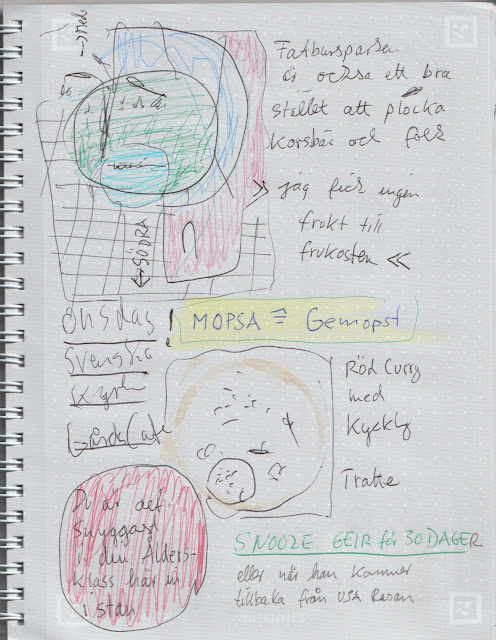 Fatbursparken
är också ett bra
stället att plocka
Korsbär och folk
jag fick ingen
frukt till
frukosten <<
SÖDRA
onsdag!
MOPSA = Gemopst
Svenska
Kyrk
GårdsCafe
Röd Curry
med
Kyckling
Du är det
snyggast
i den Ålders-
klass här in
i stan
SNOOZE GEIR för 30 DAGER
eller när han kommer
tillbaka från USA Resan
WHITELINES